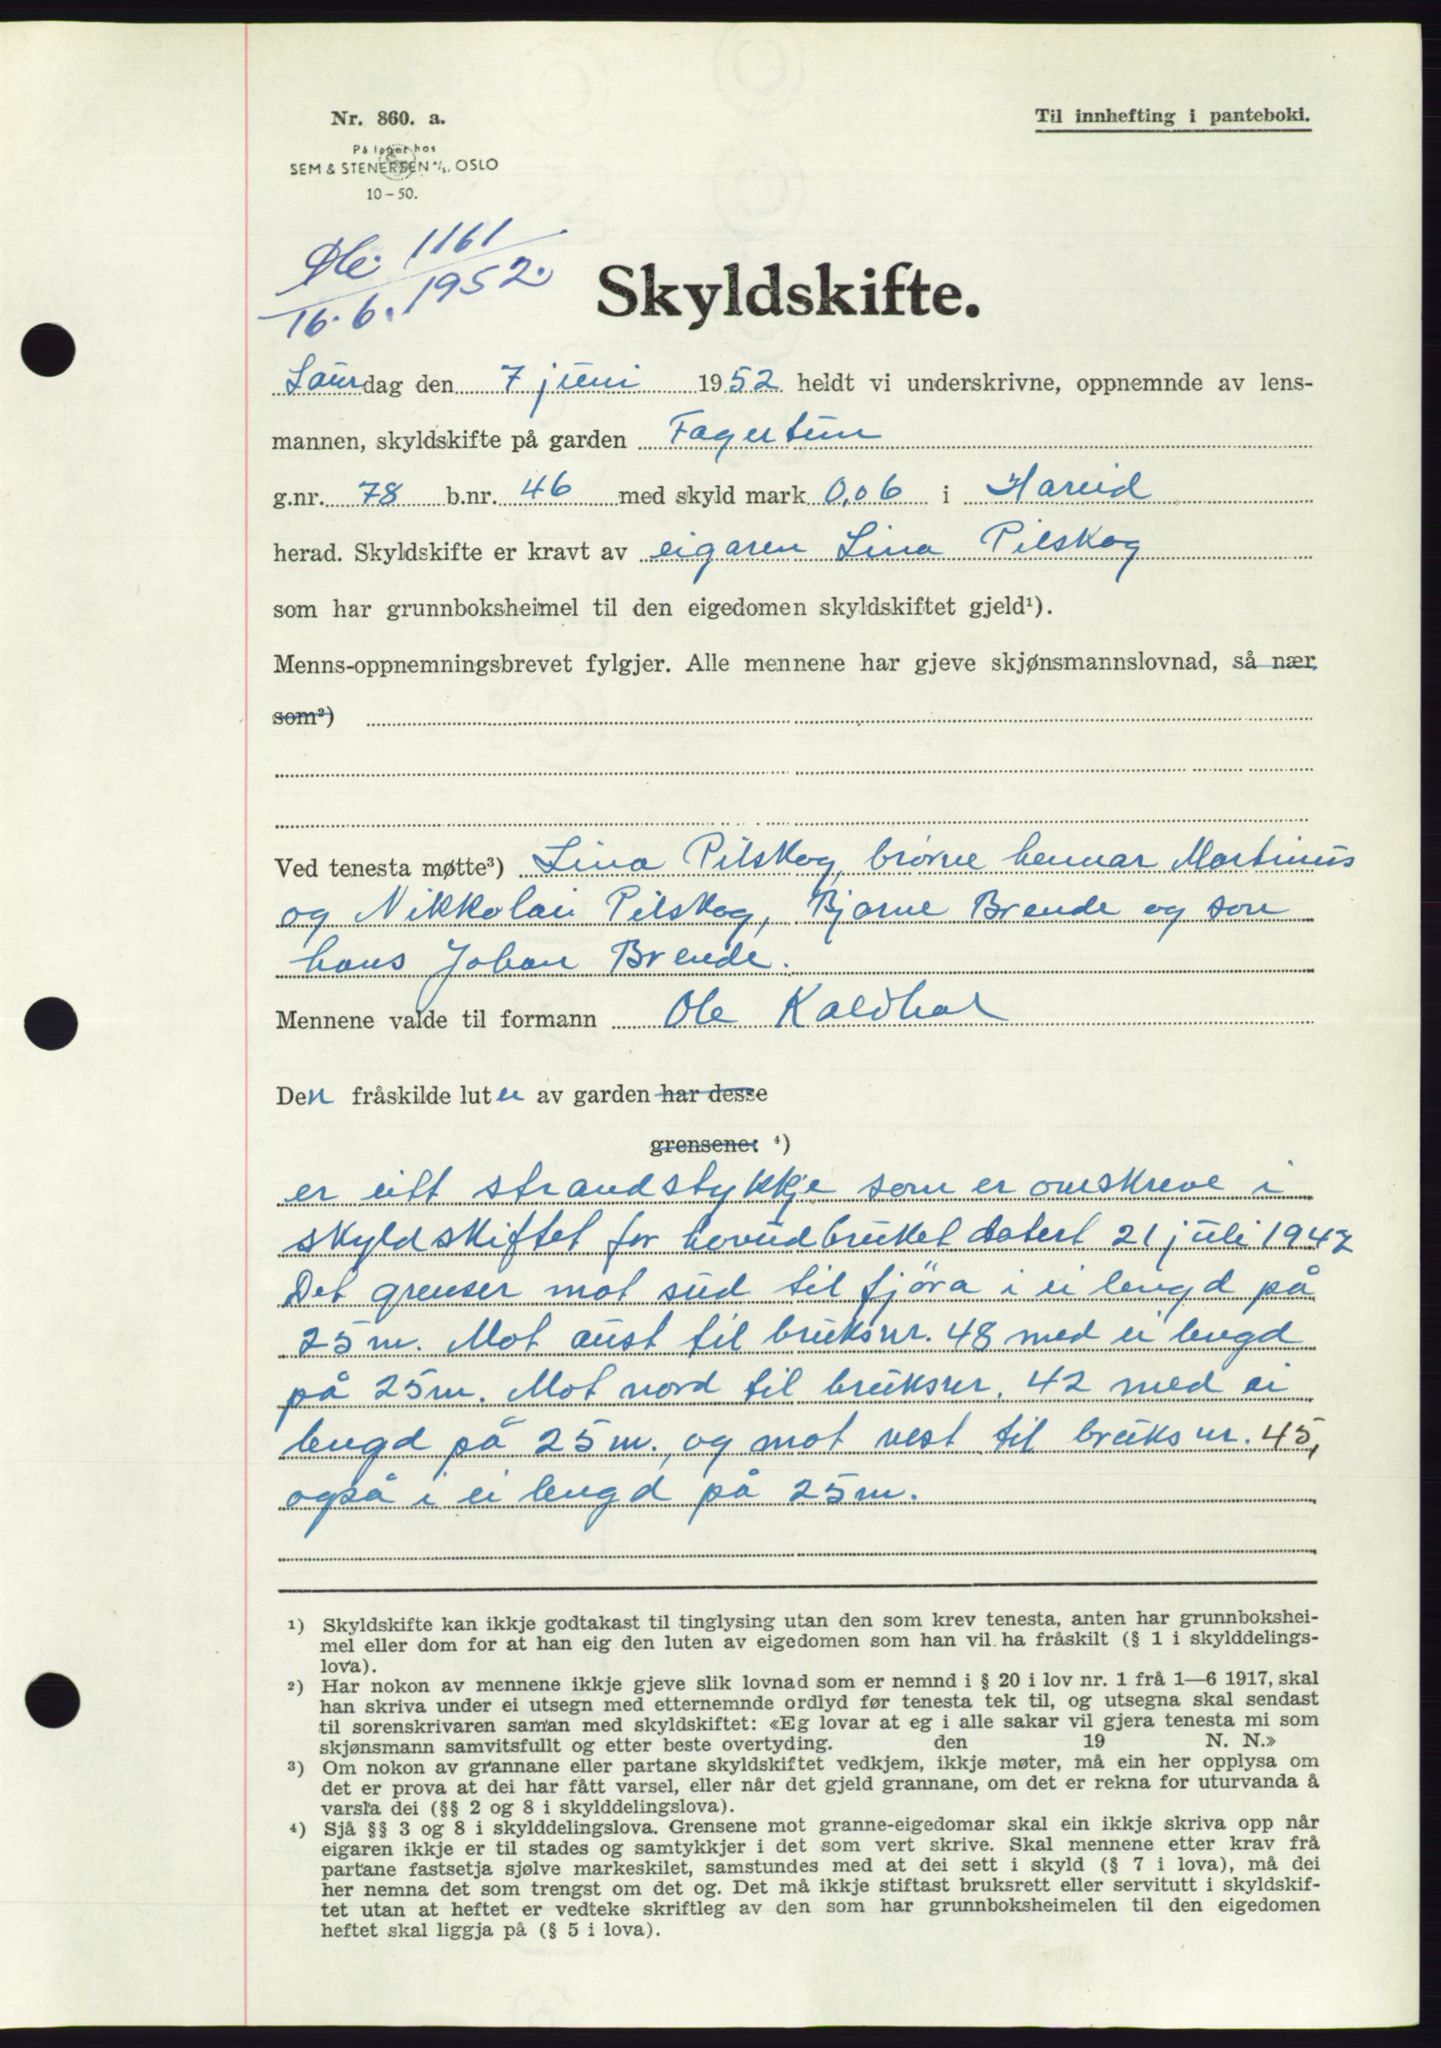 Nr. 860. a.
På lager hos
SEM & STENERSEN A/S, OSLO
10-50.
Til innhefting i panteboki.
1161
16.6.1952.
Skyldskifte.
Laurdag den 7 juni 1952 heldt vi underskrivne, oppnemnde av lens-
mannen, skyldskifte på garden Fagertun
g.nr. 78 b.nr. 46 med skyld mark 0,06 i Hareid
herad. Skyldskifte er kravt av eigaren Lina Pilskog
som har grunnboksheimel til den eigedomen skyldskiftet gjeld¹).
Menns-oppnemningsbrevet fylgjer. Alle mennene har gjeve skjønsmannslovnad, så nær
som²)
Ved tenesta møtte³) Lina Pilskog, brørne hennar Martinus
og Nikkolai Pilskog, Bjarne Brende og son
hans Johan Brende.
Mennene valde til formann Ole Kaldhol
Den fråskilde luten av garden har desse
grensene: ⁴)
er eitt strandstykkje som er omskreve i
skyldskiftet for hovudbruket datert 21 juli 1947
Det grenser mot sud til fjöra i ei lengd på
25 m. Mot aust til bruksnr. 48 med ei lengd
på 25 m. Mot nord til bruksnr. 42 med ei
lengd på 25 m., og mot vest til bruksnr. 45,
også i ei lengd på 25 m.
¹) Skyldskifte kan ikkje godtakast til tinglysing utan den som krev tenesta, anten har grunnbokshei-
mel eller dom for at han eig den luten av eigedomen som han vil ha fråskilt (§ 1 i skylddelings-
lova).
²) Har nokon av mennene ikkje gjeve slik lovnad som er nemnd i § 20 i lov nr. 1 frå 1—6 1917, skal
han skriva under ei utsegn med etternemnde ordlyd før tenesta tek til, og utsegna skal sendast
til sorenskrivaren saman med skyldskiftet: «Eg lovar at eg i alle sakar vil gjera tenesta mi som
skjønsmann samvitsfullt og etter beste overtyding. den 19 N. N.»
³) Om nokon av grannane eller partane skyldskiftet vedkjem, ikkje møter, må ein her opplysa om
det er prova at dei har fått varsel, eller når det gjeld grannane, om det er rekna for uturvanda å
varsla dei (§§ 2 og 8 i skylddelingslova).
⁴) Sjå §§ 3 og 8 i skylddelingslova. Grensene mot granne-eigedomar skal ein ikkje skriva opp når
eigaren ikkje er til stades og samtykkjer i det som vert skrive. Skal mennene etter krav frå
partane fastsetja sjølve markeskilet, samstundes med at dei sett i skyld (§ 7 i lova), må dei
her nemna det som trengst om det og. Det må ikkje stiftast bruksrett eller servitutt i skyldskif-
tet utan at heftet er vedteke skriftleg av den som har grunnboksheimelen til den eigedomen
heftet skal liggja på (§ 5 i lova).